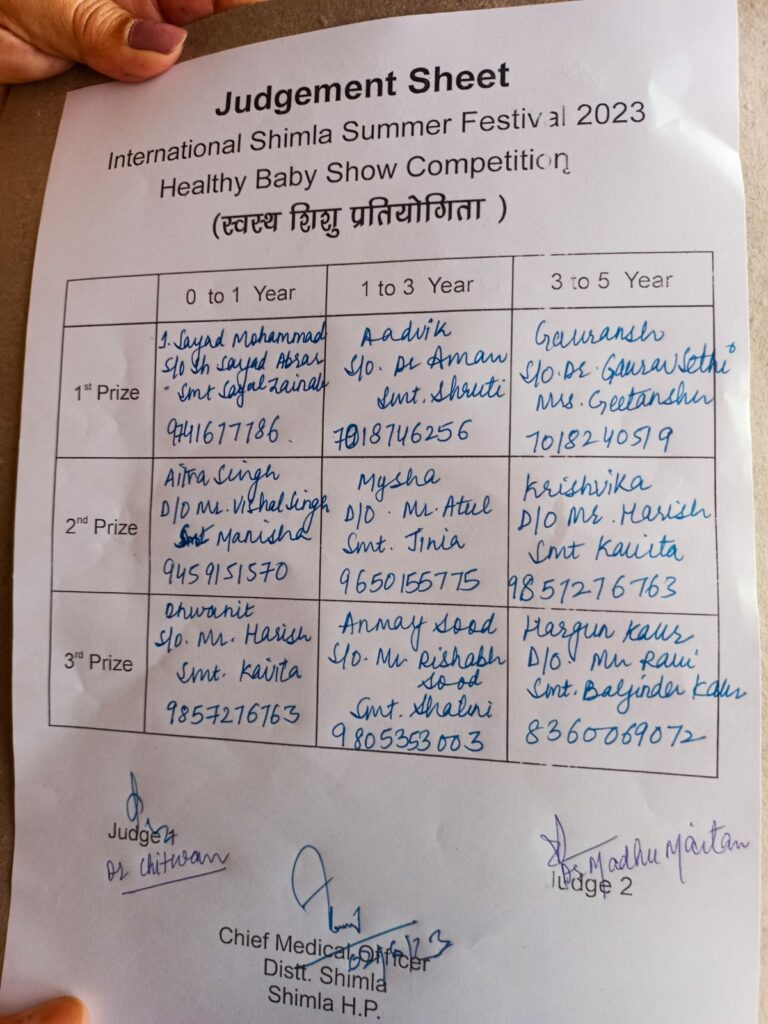 Judgement Sheet
International Shimla Summer Festival 2023
Healthy Baby Show Competition
(स्वस्थ शिशु प्रतियोगिता )
0 to 1 Year
1 to 3 Year
3 to 5 Year
1st Prize
1. Sayad Mohammad
S/o Sh Sayad Abrar
Smt Sayal Zainab
9741677786
Aadvik
S/o. Dr Aman
Smt. Shruti
7018746256
Gauransh
S/o. Dr. Gaurav Sethi
Mrs. Geetanshu
7018240519
2nd Prize
Singh
D/O Mr. Vishal Singh
Smt Manisha
9459151570
Mysha
D/O. Mr. Atul
Smt. Jinia
9650155775
Krishvika
D/O Mr. Harish
Smt Kavita
9857276763
3rd Prize
Dhwanit
S/o. Mr. Harish
Smt. Kavita
9857276763
Anmay Sood
S/o. Mr Rishabh
Sood
Smt. Shalini
9805353003
Hargun Kaur
D/O. Mr Ravi
Smt. Baljinder Kaur
8360069072
Judge 1
Dr Chitwan
Dr Madhu Maitan
Judge 2
Chief Medical Officer
Distt. Shimla
Shimla H.P.